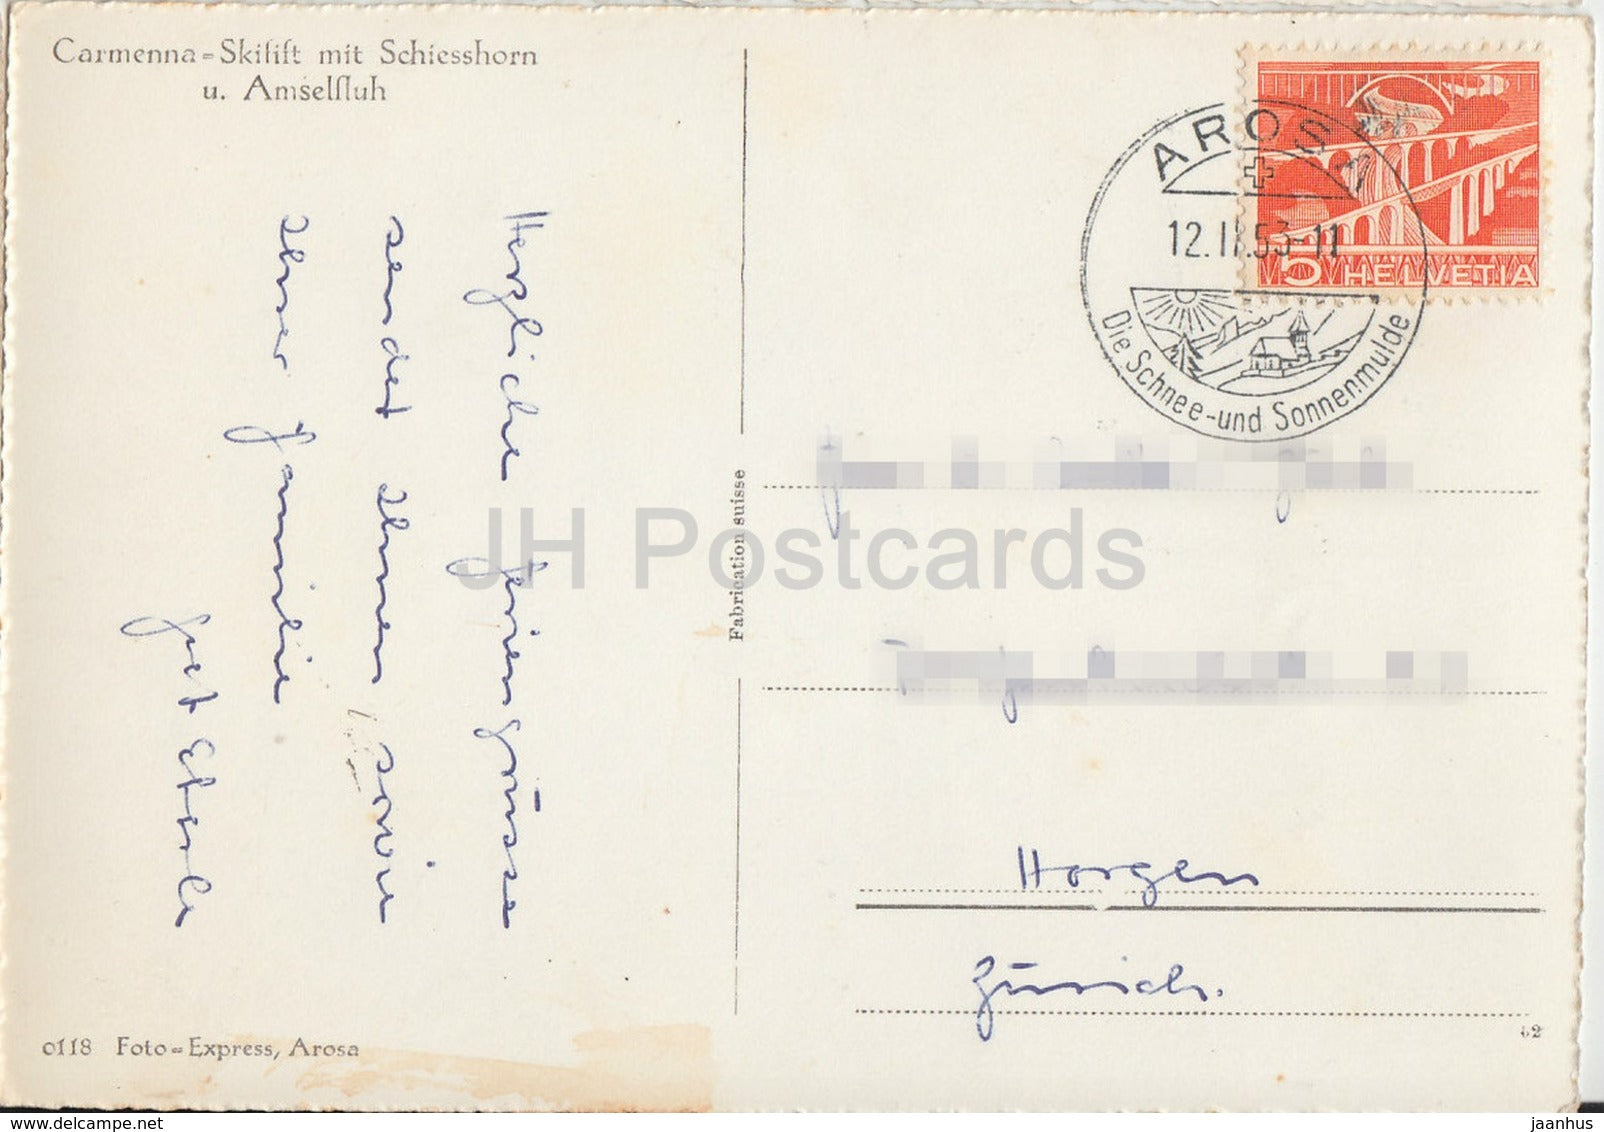 Carmenna=Skilift mit Schiesshorn
u. Amselfluh
Herzliche Feriengrüsse
sendet Ihnen sowie
Ihrer Familie
AROSA
12.II.53-11
Die Schnee- und Sonnenmulde
5 HELVETIA
Fabrication suisse
JH Postcards
Horgen
Zürich.
0118 Foto=Express, Arosa
62
delcampe.net
jaanhus